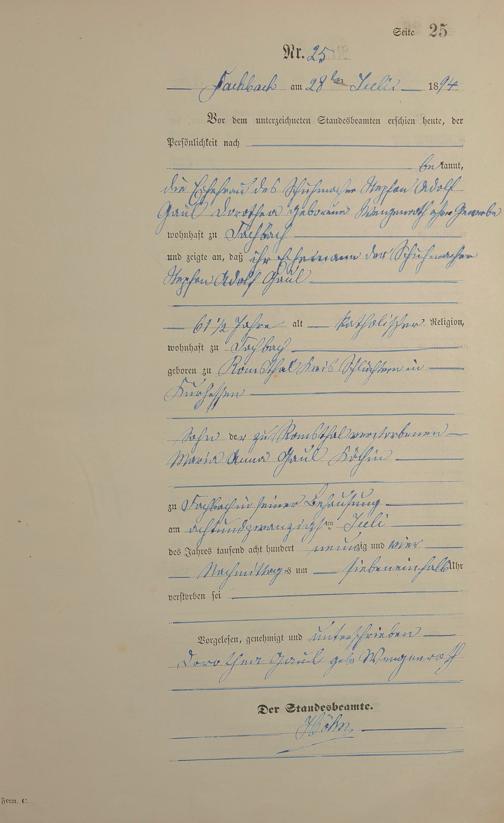 Seite 25
Nr. 25
Fachbach am 28ten Juli 1894.
Vor dem unterzeichneten Standesbeamten erschien heute, der
Persönlichkeit nach
bekannt,
die Ehefrau des Schuhmacher Stephan Adolf
Gaul Dorothea geborene ohne Gewerbe
wohnhaft zu Fachbach
und zeigte an, daß ihr Ehemann der Schuhmacher
Stephan Adolf Gaul
61 1/2 Jahre alt katholischer Religion,
wohnhaft zu Fachbach
geboren zu Romsthal Kreis Schlüchtern in
Kurhessen
Sohn der zu Romsthal verstorbenen
Maria Anna Gaul Köchin
zu Fachbach in seiner Behausung
am achtundzwanzigsten Juli
des Jahres tausend acht hundert neunzig und vier
Nachmittags um siebeneinhalb Uhr
verstorben sei
Vorgelesen, genehmigt und unterschrieben
Dorothea Gaul geb.
Der Standesbeamte.
Höhn
Form. C.